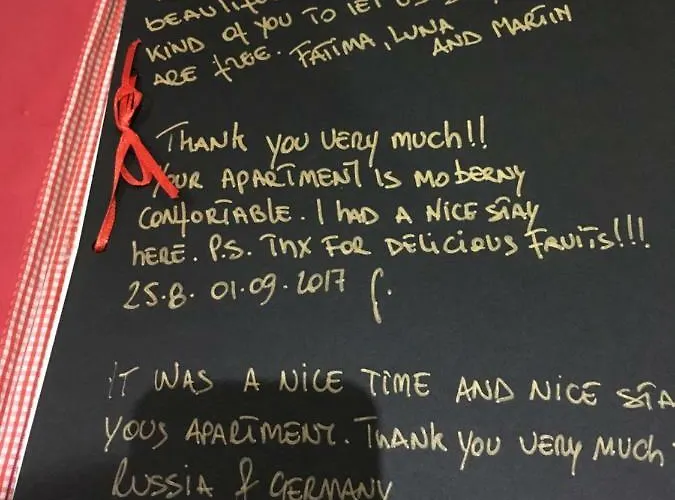 KIND OF YOU TO LET US
ARE FREE. FATIMA, LUNA AND MARTIN
THANK YOU VERY MUCH!!
YOUR APARTMENT IS MODERNY
CONFORTABLE. I HAD A NICE STAY
HERE. P.S. THX FOR DELICIOUS FRUITS!!!
25.8. 01.09.2017
IT WAS A NICE TIME AND NICE STA
YOUS APARTMENT. THANK YOU VERY MUCH
RUSSIA & GERMANY